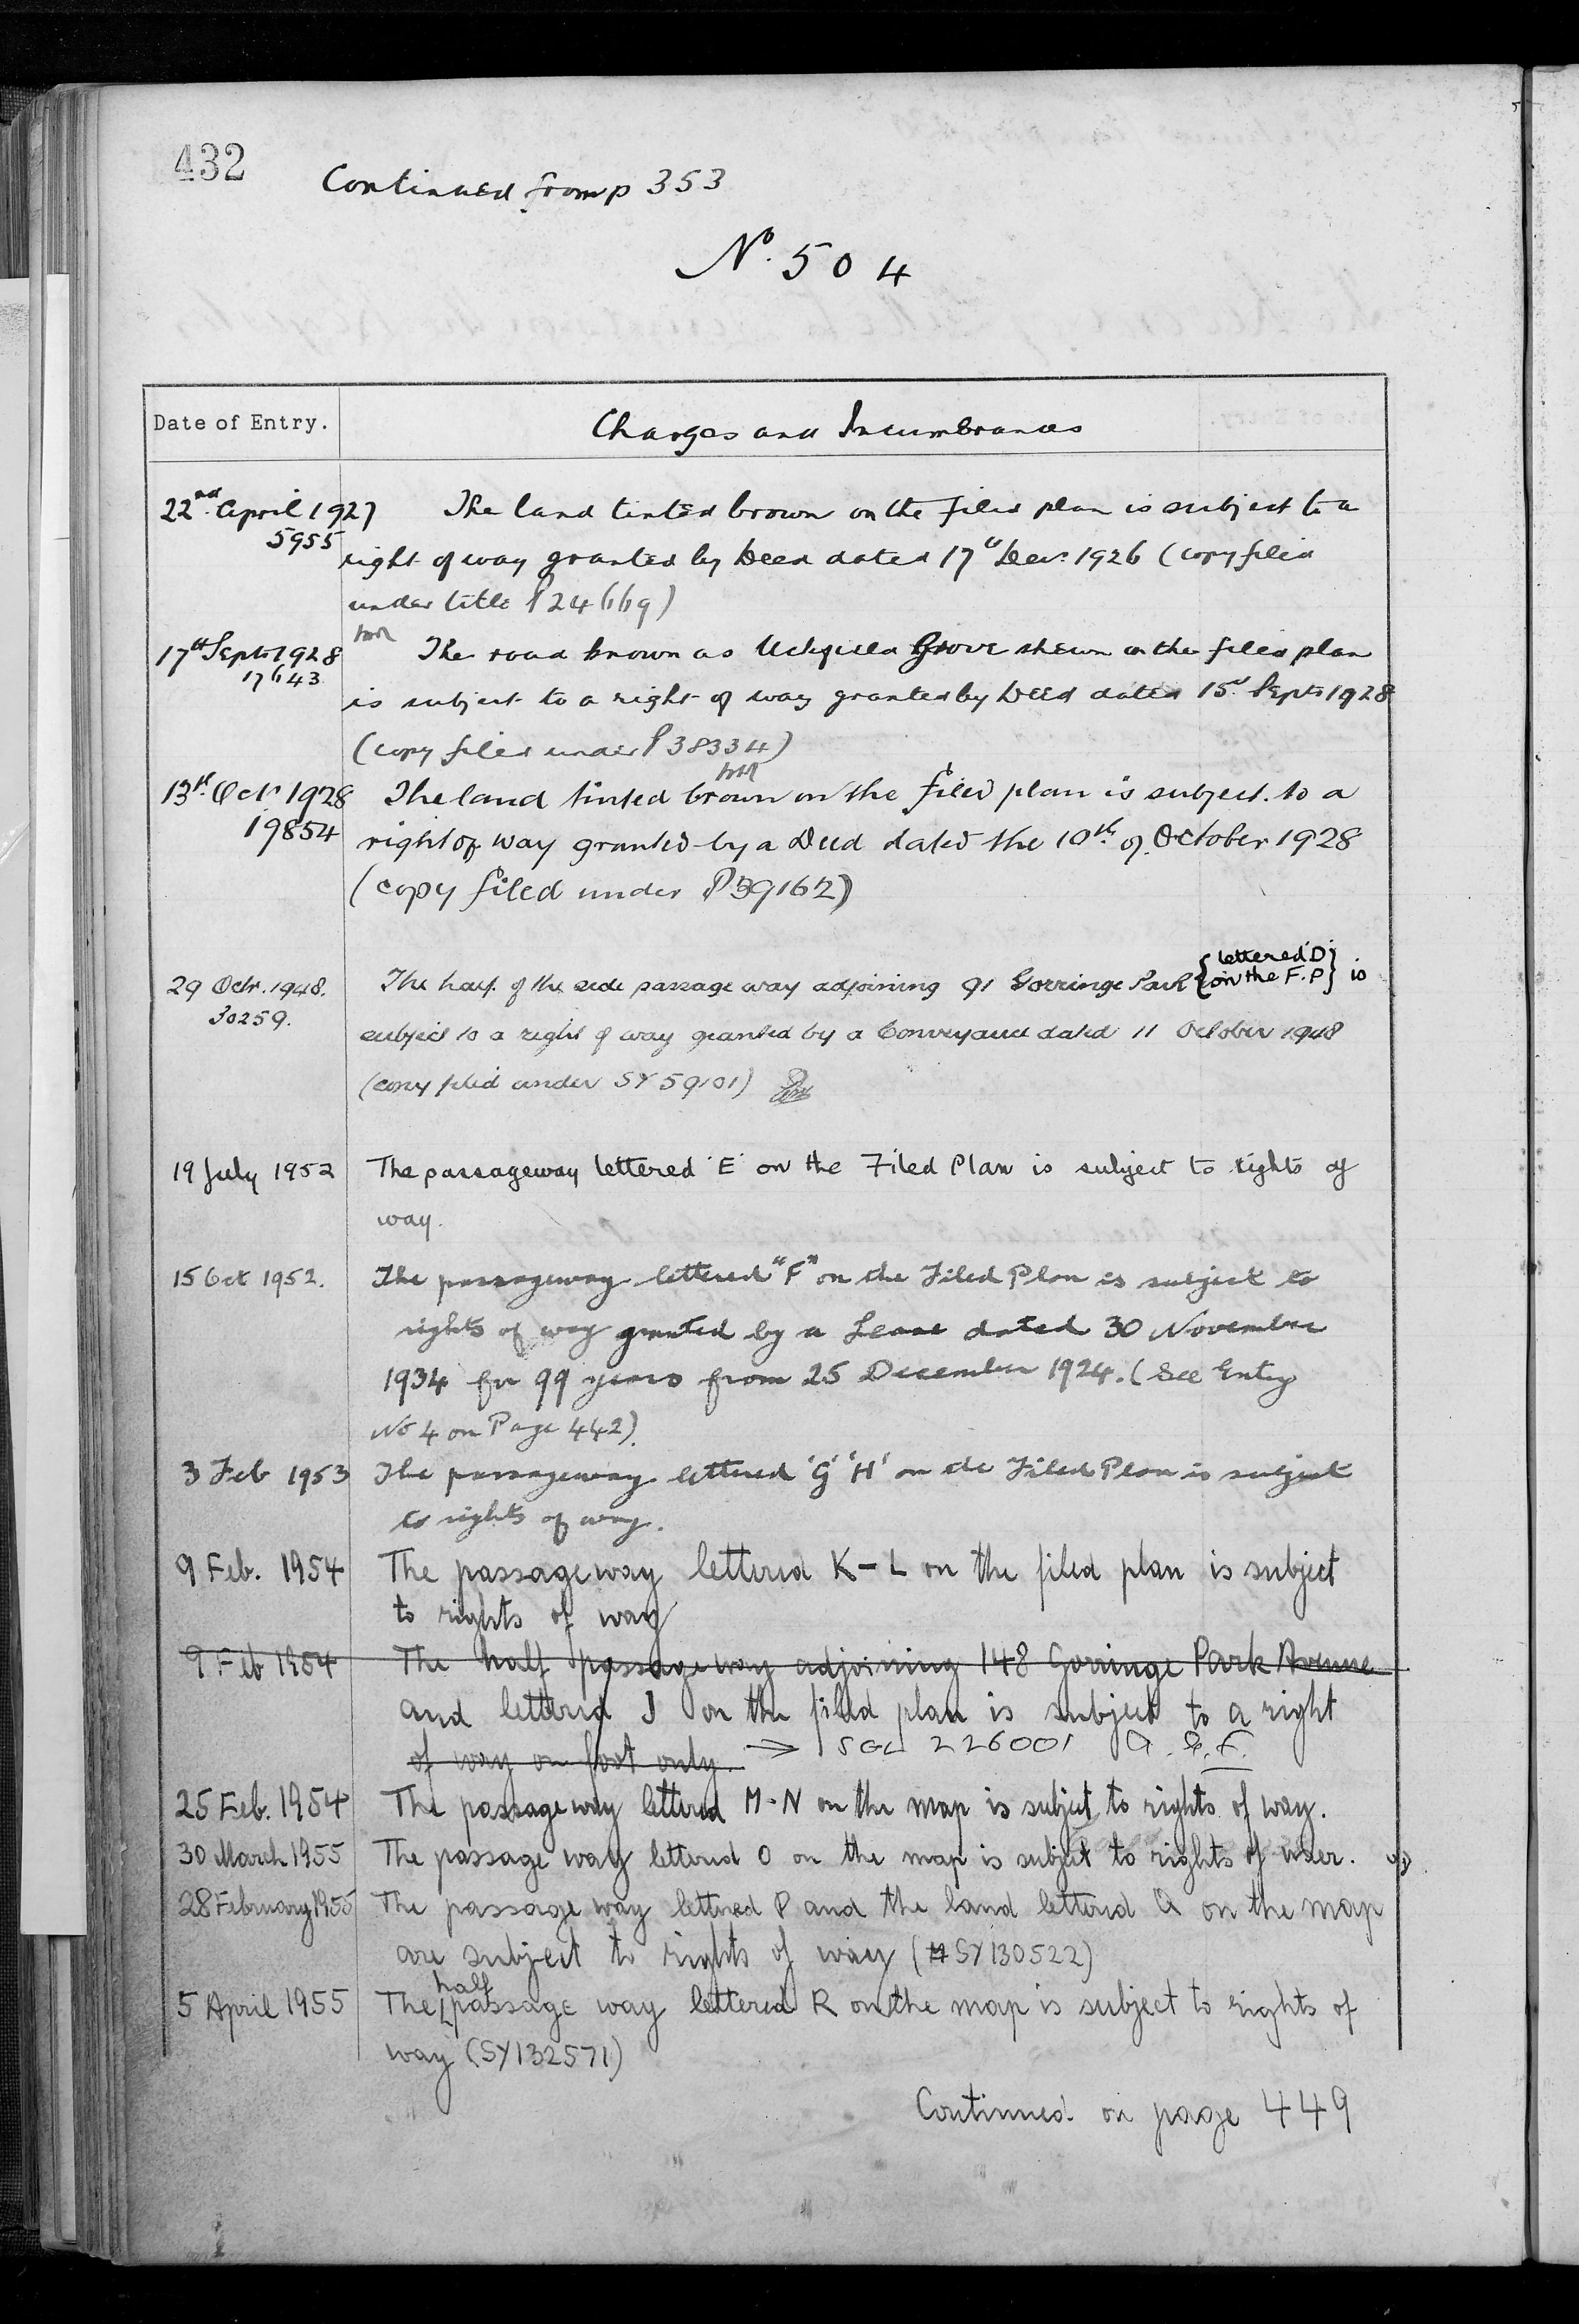 432
Continued from p 353
No. 504
Date of Entry.
Charges and Incumbrances
22nd April 1927 The land tinted brown on the filed plan is subject to a
5955 right of way granted by Deed dated 17th Decr. 1926 (copy filed
under title P24669)
17th Septr 1928 The road known as Grove shewn on the filed plan
17643 is subject to a right of way granted by Deed dated 15th Septr 1928
(copy filed under P38334)
13th Octr 1928 The land tinted brown on the filed plan is subject to a
19854 right of way granted by a Deed dated the 10th of October 1928
(copy filed under P39162)
29 Octr. 1948. The half of the side passage way adjoining 91 Gorringe Park {lettered 'D' on the F.P} is
30259. subject to a right of way granted by a Conveyance dated 11 October 1948
(copy filed under SY59101)
19 July 1952 The passageway lettered 'E' on the Filed Plan is subject to rights of
way.
15 Oct 1952. The passageway lettered "F" on the Filed Plan is subject to
rights of way granted by a Lease dated 30 November
1934 for 99 years from 25 December 1924. (See Entry
No 4 on Page 442).
3 Feb 1953 The passageway lettered 'G' 'H' on the Filed Plan is subject
to rights of way.
9 Feb. 1954 The passageway lettered K-L on the filed plan is subject
to rights of way
9 Feb 1954 The half passageway adjoining 148 Gorringe Park Avenue
and lettered J on the filed plan is subject to a right
of way on foot only. → SGL 226001
25 Feb. 1954 The passageway lettered M-N on the map is subject to rights of way.
30 March 1955 The passage way lettered O on the map is subject to rights of user.
28 February 1955 The passage way lettered P and the land lettered Q on the map
are subject to rights of way (SY130522)
5 April 1955 The half passage way lettered R on the map is subject to rights of
way (SY132571)
Continued on page 449